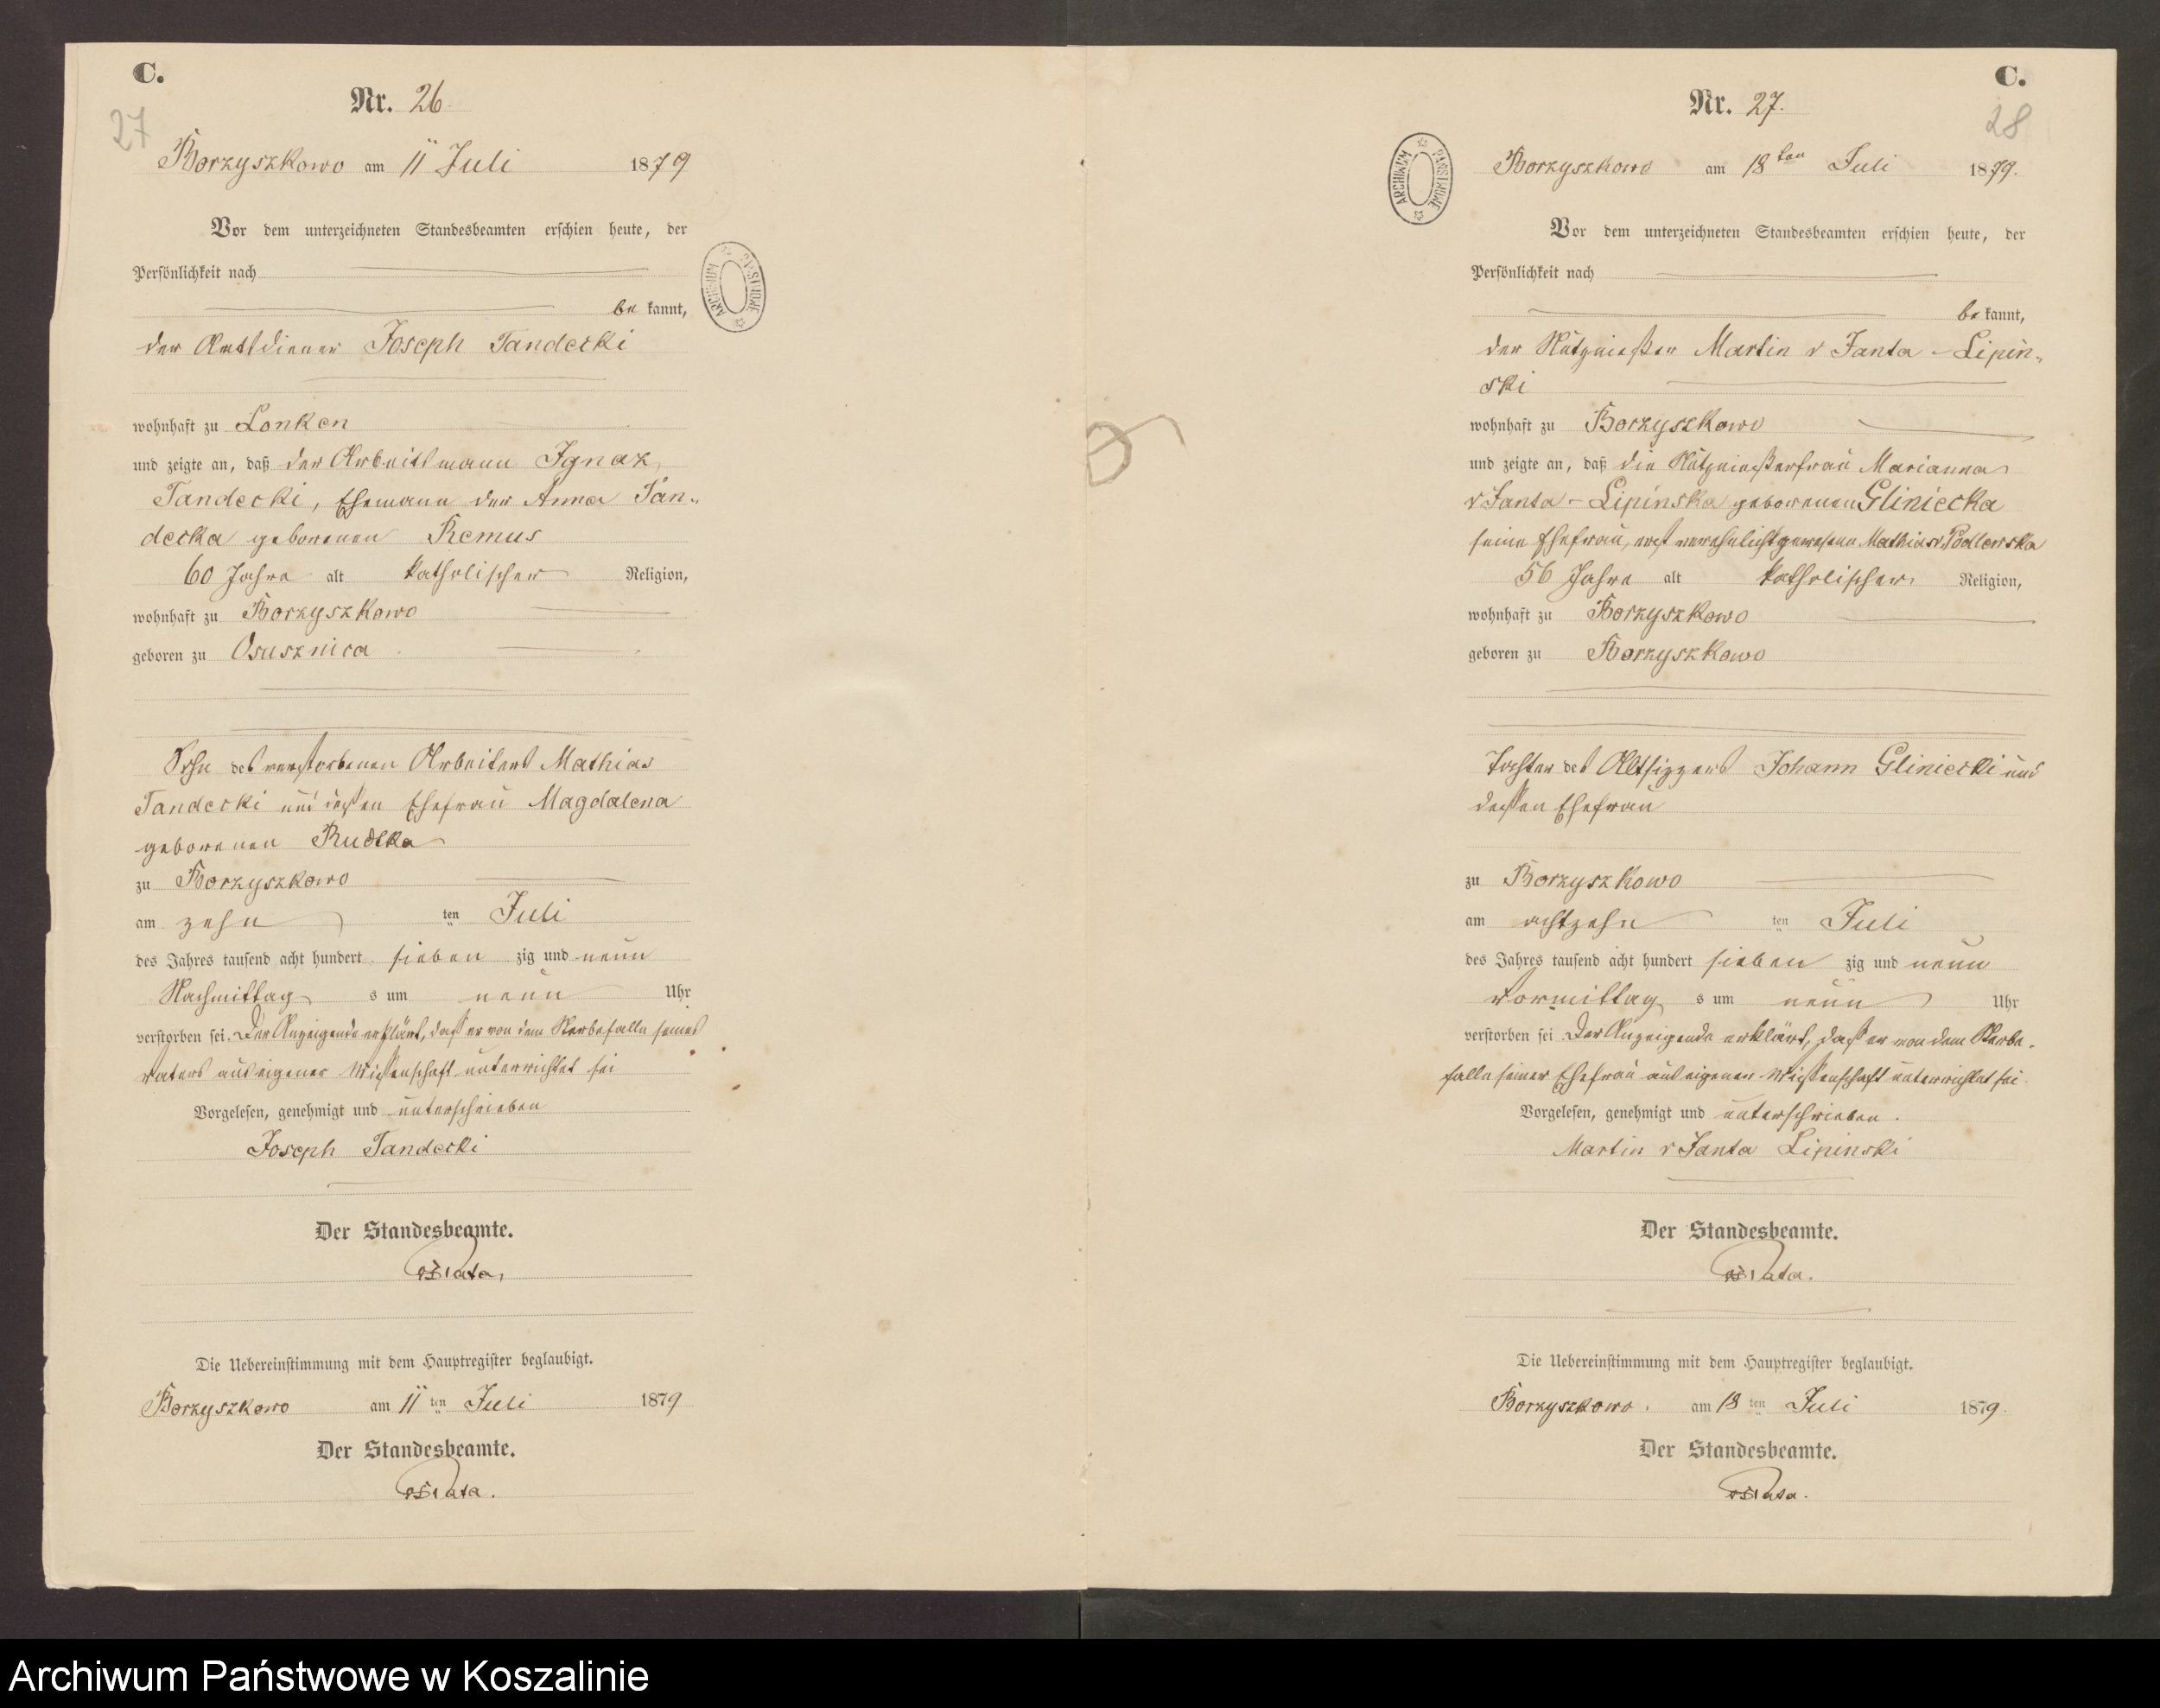 C.
27
Nr. 26.
Borzyszkowo am 11 Juli 1879
Vor dem unterzeichneten Standesbeamten erschien heute, der
Persönlichkeit nach
be kannt,
der Amtsdiener Joseph Tandecki
wohnhaft zu Lonken
und zeigte an, daß der Arbeitsmann Ignaz
Tandecki, Ehemann der Anna Tan-
decka geborenen Remus
60 Jahre alt katholischer Religion,
wohnhaft zu Borzyszkowo
geboren zu Osusznica
Sohn des verstorbenen Arbeiters Mathias
Tandecki und dessen Ehefrau Magdalena
geborenen
zu Borzyszkowo
am zehn ten Juli
des Jahres tausend acht hundert sieben zig und neun
Nachmittag s um neun Uhr
verstorben sei. Der Anzeigende erklärt, daß er von dem Sterbefalle seines
Vaters aus eigener Wissenschaft unterrichtet sei
Vorgelesen, genehmigt und unterschrieben
Joseph Tandecki
Der Standesbeamte.
Die Uebereinstimmung mit dem Hauptregister beglaubigt.
Borzyszkowo am 11 ten Juli 1879
Der Standesbeamte.
C.
28
Nr. 27.
ARCHIWUM PAŃSTWOWE
Borzyszkowo am 18 ten Juli 1879.
Vor dem unterzeichneten Standesbeamten erschien heute, der
Persönlichkeit nach
be kannt,
der Nutznießer Martin v Janta - Lipin-
ski
wohnhaft zu Borzyszkowo
und zeigte an, daß die Nutznießerfrau Marianna
v Janta - Lipinska geborenen Gliniecka
seine Ehefrau, erst verehelicht gewesene Mathias v. Podlewska
56 Jahre alt katholischer Religion,
wohnhaft zu Borzyszkowo
geboren zu Borzyszkowo
Tochter des Altsitzers Johann Gliniecki und
dessen Ehefrau
zu Borzyszkowo
am achtzehn ten Juli
des Jahres tausend acht hundert sieben zig und neun
Vormittag s um neun Uhr
verstorben sei. Der Anzeigende erklärt, daß er von dem Sterbe-
falle seiner Ehefrau aus eigener Wissenschaft unterrichtet sei.
Vorgelesen, genehmigt und unterschrieben.
Martin v Janta Lipinski
Der Standesbeamte.
Die Uebereinstimmung mit dem Hauptregister beglaubigt.
Borzyszkowo. am 18 ten Juli 1879.
Der Standesbeamte.
Archiwum Państwowe w Koszalinie